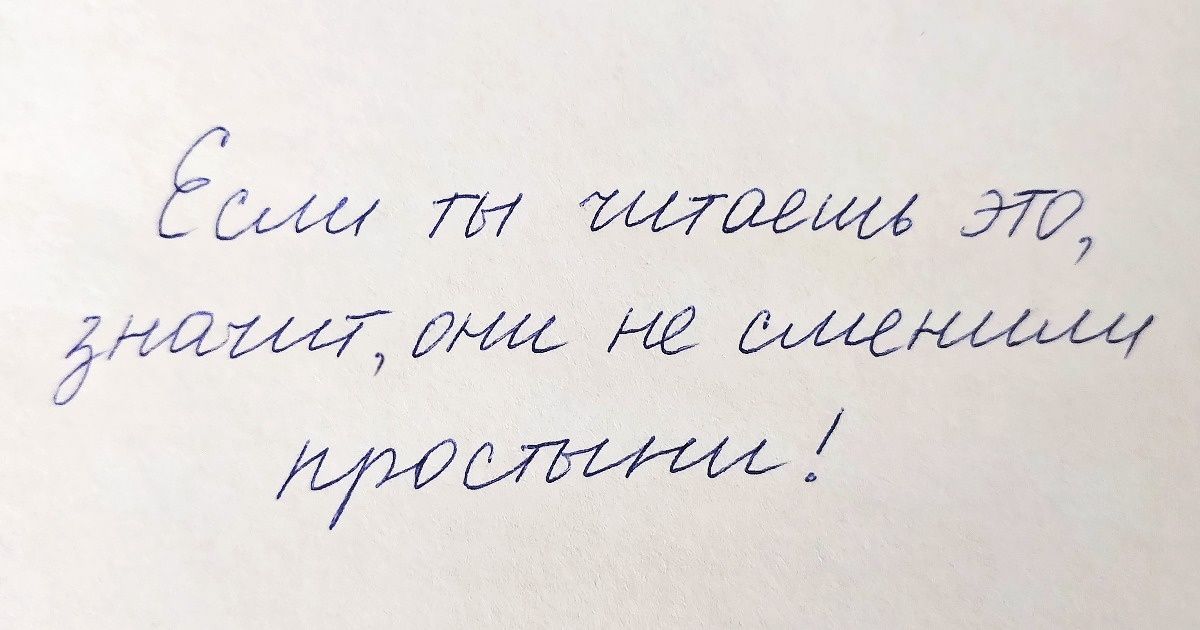 Если ты читаешь это,
значит, они не сменили
простыни!